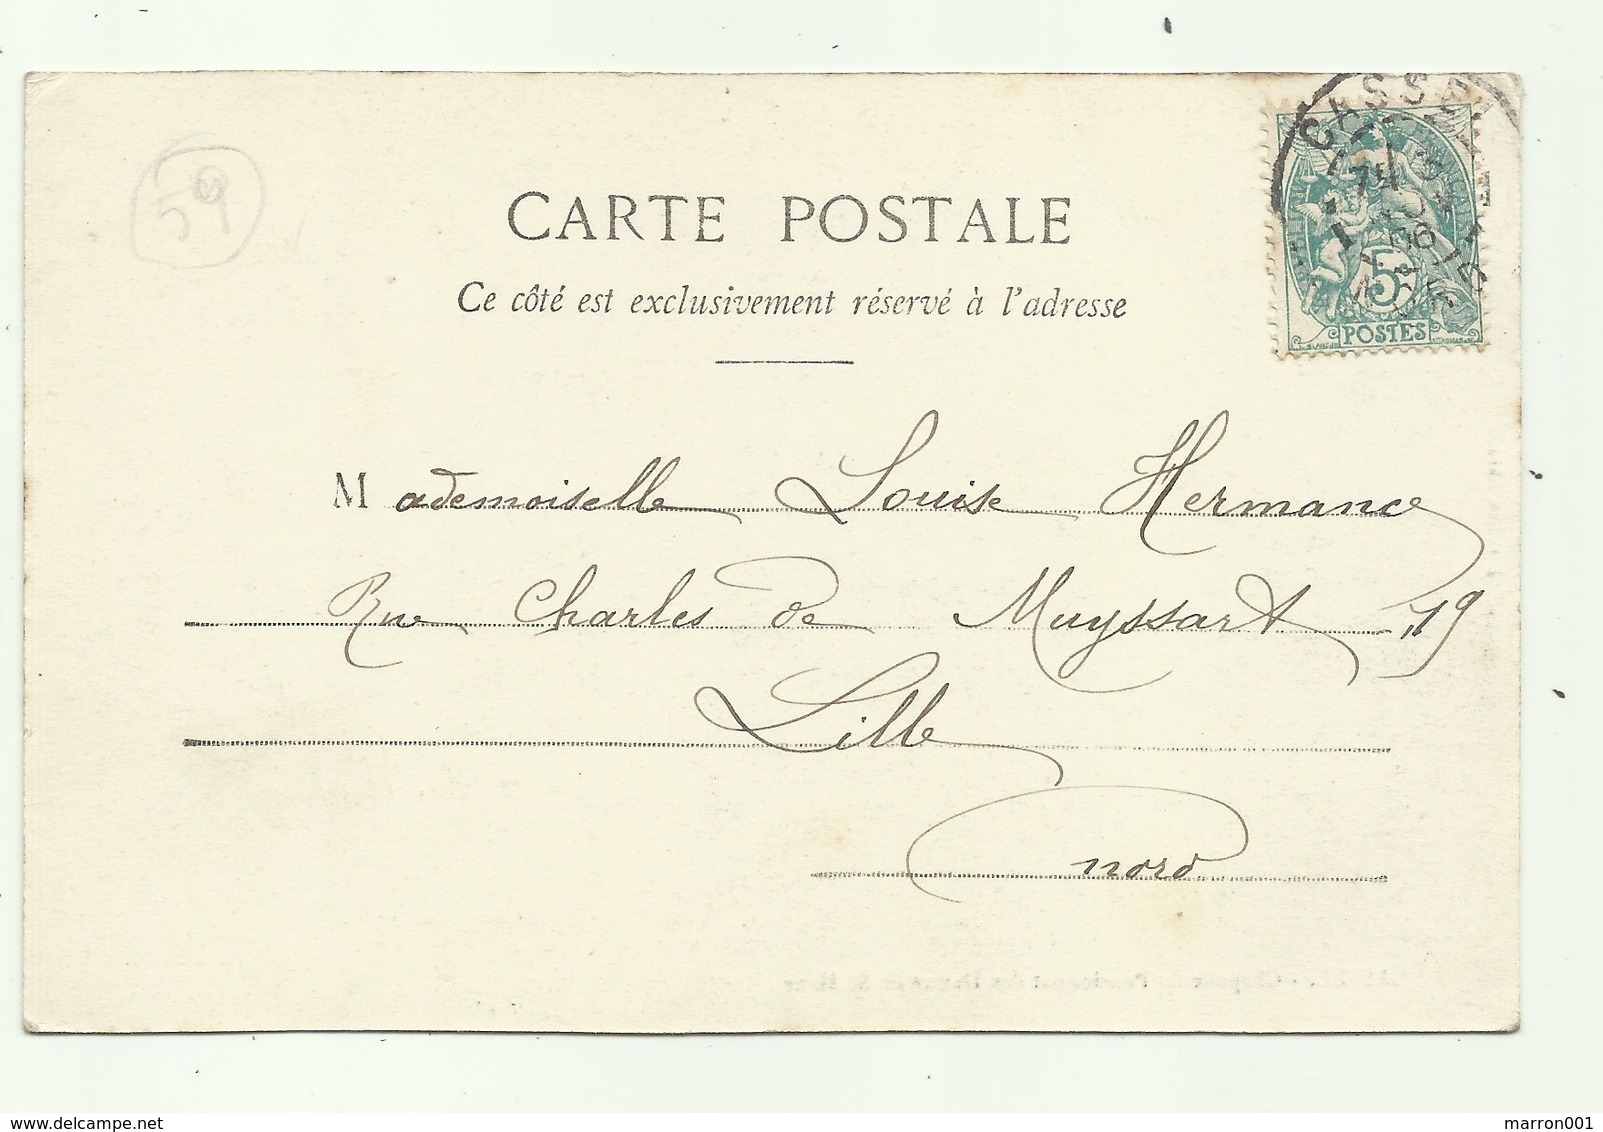 59
CARTE POSTALE
Ce côté est exclusivement réservé à l'adresse
CASSEL
5
POSTES
Mademoiselle Louise Hermance
Rue Charles de Muyssart, 19
Lille
nord
www.delcampe.net
marron001